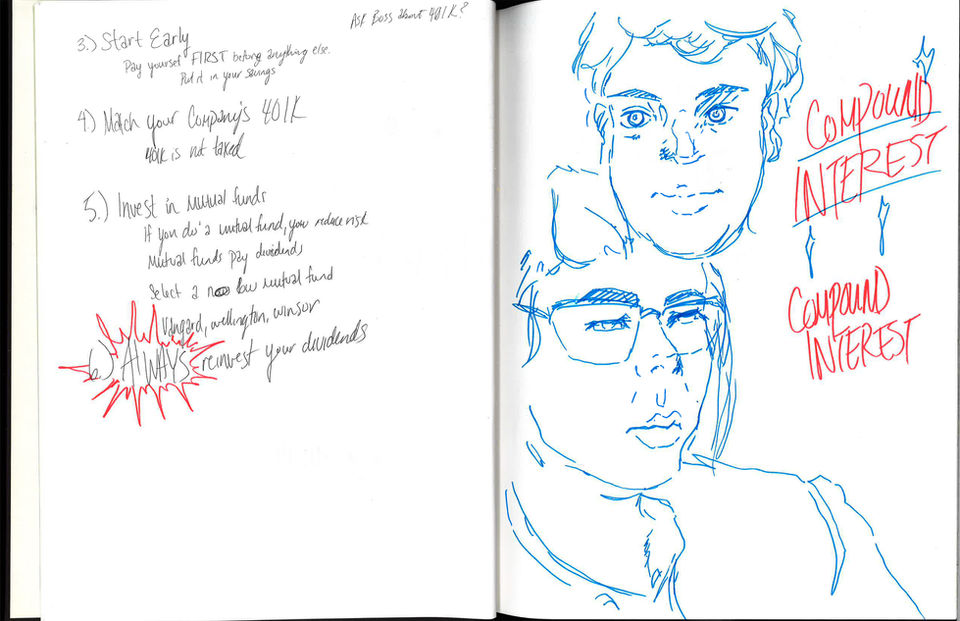 Ask Boss about 401K?
3.) Start Early
Pay yourself FIRST before anything else.
Put it in your savings
4.) Match your Company's 401K
401K is not taxed
5.) Invest in Mutual funds
If you do a mutual fund, you reduce risk
Mutual funds pay dividends
Select a low mutual fund
Vangard, wellington, winsor
6.) AlWAYS reinvest your dividends
COMPOUND
INTEREST
COMPOUND
INTEREST